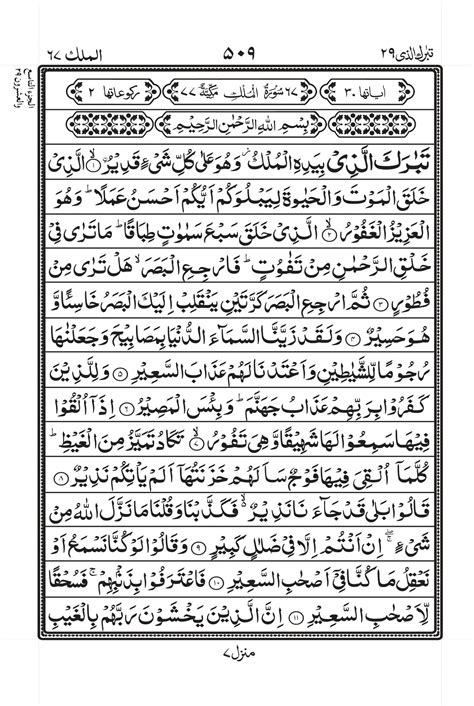 تبٰرك الذى ٢٩
٥٠٩
الملك ٦٧
الجزء التاسع
والعشرون ٢٩
اٰیاتها ٣٠
٦٧ سُوْرَةُ الْمُلْكِ مَكِّيَّةٌ ٧٧
ركوعاتها ٢
بِسْمِ اللّٰهِ الرَّحْمٰنِ الرَّحِيْمِ
تَبٰرَكَ الَّذِىْ بِيَدِهِ الْمُلْكُ وَهُوَ عَلٰى كُلِّ شَىْءٍ قَدِيْرُۨ ۙ‏﴿۱﴾ الَّذِىْ
خَلَقَ الْمَوْتَ وَالْحَيٰوةَ لِيَبْلُوَكُمْ اَيُّكُمْ اَحْسَنُ عَمَلًا ؕ وَهُوَ
الْعَزِيْزُ الْغَفُوْرُۙ‏﴿۲﴾ الَّذِىْ خَلَقَ سَبْعَ سَمٰوٰتٍ طِبَاقًا ؕ مَا تَرٰى فِىْ
خَلْقِ الرَّحْمٰنِ مِنْ تَفٰوُتٍ ؕ فَارْجِعِ الْبَصَرَۙ هَلْ تَرٰى مِنْ
فُطُوْرٍ‏﴿۳﴾ ثُمَّ ارْجِعِ الْبَصَرَ كَرَّتَيْنِ يَنْقَلِبْ اِلَيْكَ الْبَصَرُ خَاسِئًا وَّ
هُوَ حَسِيْرٌ‏﴿۴﴾ وَلَقَدْ زَيَّنَّا السَّمَآءَ الدُّنْيَا بِمَصَابِيْحَ وَجَعَلْنٰهَا
رُجُوْمًا لِّلشَّيٰطِيْنِ وَاَعْتَدْنَا لَهُمْ عَذَابَ السَّعِيْرِ‏﴿۵﴾ وَلِلَّذِيْنَ
كَفَرُوْا بِرَبِّهِمْ عَذَابُ جَهَنَّمَ ؕ وَبِئْسَ الْمَصِيْرُ‏﴿۶﴾ اِذَاۤ اُلْقُوْا
فِيْهَا سَمِعُوْا لَهَا شَهِيْقًا وَّهِىَ تَفُوْرُۙ‏﴿۷﴾ تَكَادُ تَمَيَّزُ مِنَ الْغَيْظِ ؕ
كُلَّمَاۤ اُلْقِىَ فِيْهَا فَوْجٌ سَاَلَهُمْ خَزَنَتُهَاۤ اَلَمْ يَاْتِكُمْ نَذِيْرٌ‏﴿۸﴾
قَالُوْا بَلٰى قَدْ جَآءَنَا نَذِيْرٌ ۙ فَكَذَّبْنَا وَقُلْنَا مَا نَزَّلَ اللّٰهُ مِنْ
شَىْءٍ ۖۚ اِنْ اَنْتُمْ اِلَّا فِىْ ضَلٰلٍ كَبِيْرٍ‏﴿۹﴾ وَقَالُوْا لَوْ كُنَّا نَسْمَعُ اَوْ
نَعْقِلُ مَا كُنَّا فِىْۤ اَصْحٰبِ السَّعِيْرِ‏﴿۱۰﴾ فَاعْتَرَفُوْا بِذَنْۢبِهِمْ ۚ فَسُحْقًا
لِّاَصْحٰبِ السَّعِيْرِ‏﴿۱۱﴾ اِنَّ الَّذِيْنَ يَخْشَوْنَ رَبَّهُمْ بِالْغَيْبِ
منزل ٧